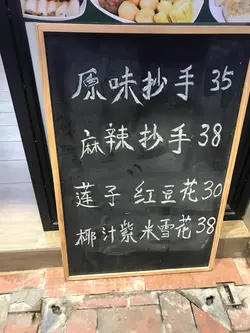 原味抄手 35
麻辣抄手 38
莲子 红豆花30
椰汁紫米雪花38